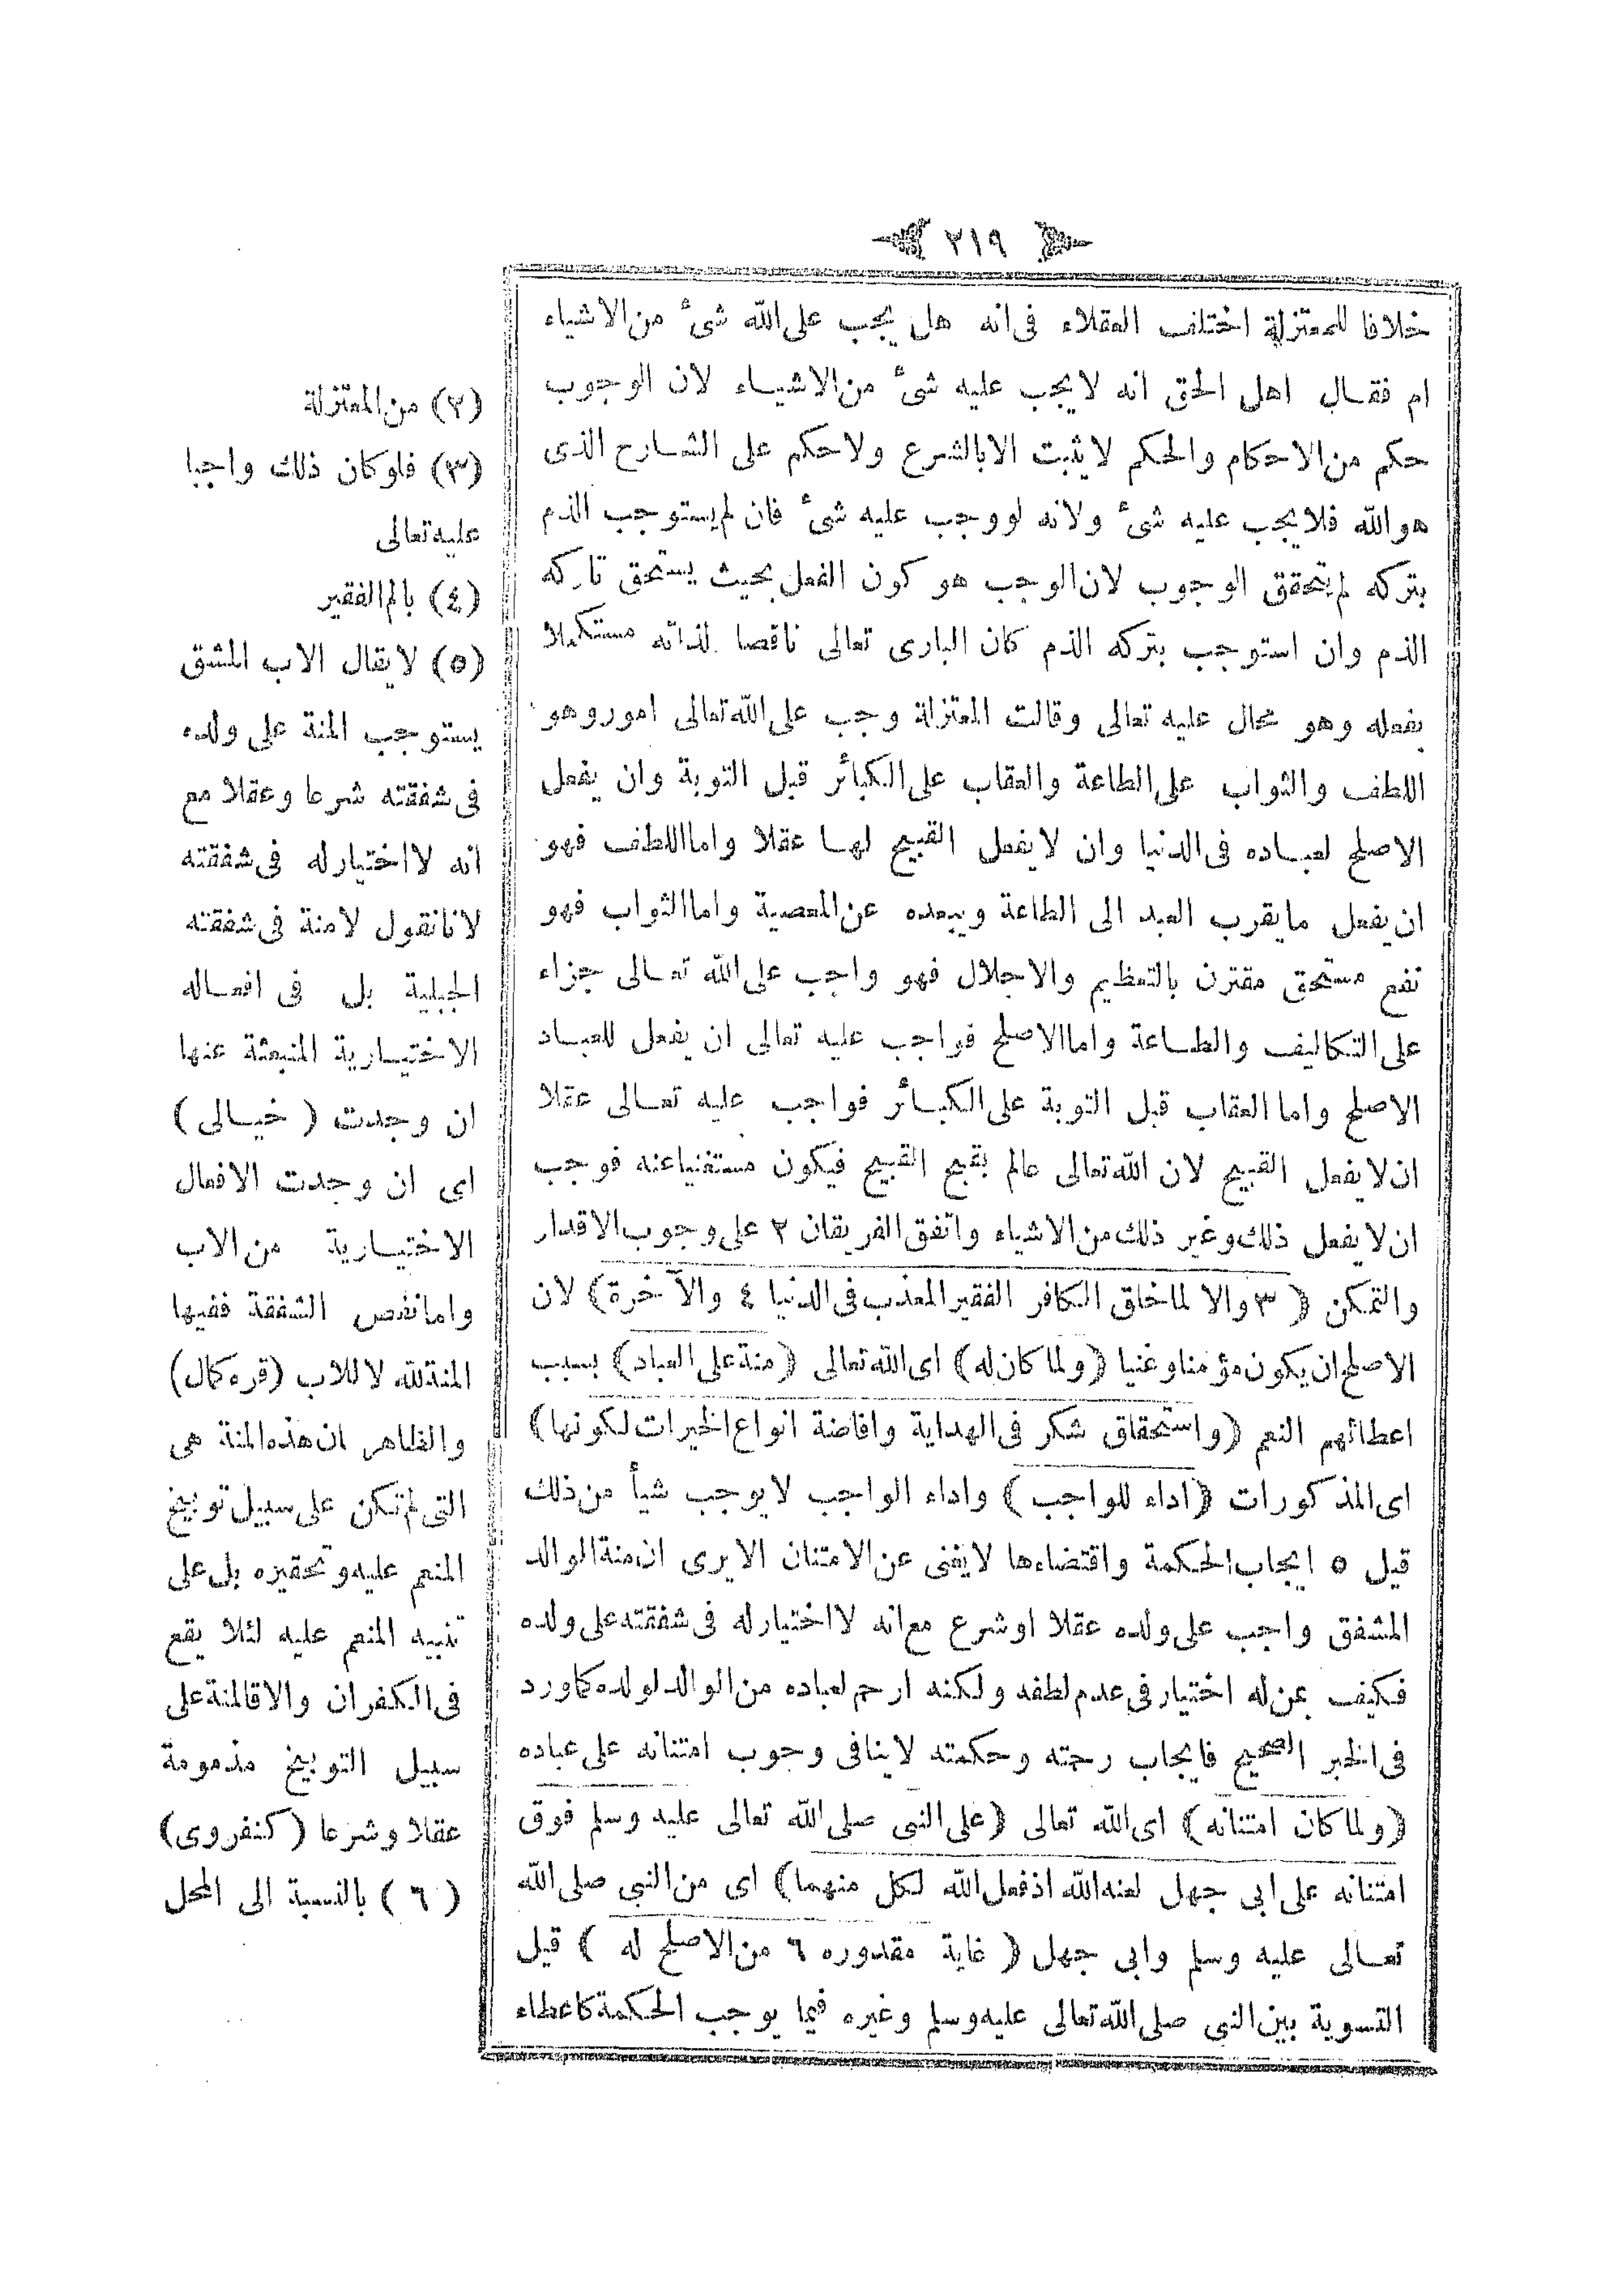 ٢١٩
خلافا للمعتزلة اختلف العقلاء فى انه هل يجب على الله شئ من الاشياء
ام فقال اهل الحق انه لا يجب عليه شئ من الاشياء لان الوجوب
حكم من الاحكام والحكم لا يثبت الا بالشرع ولا حكم على الشارع الذى
هو الله فلا يجب عليه شئ ولانه لو وجب عليه شئ فان لم يستوجب الذم
بتركه لم يتحقق الوجوب لان الوجب هو كون الفعل بحيث يستحق تاركه
الذم وان استوجب بتركه الذم كان البارى تعالى ناقصا لذاته مستكملا
بفعله وهو محال عليه تعالى وقالت المعتزلة وجب على الله تعالى امور وهو
اللطف والثواب على الطاعة والعقاب على الكبائر قبل التوبة وان يفعل
الاصلح لعباده فى الدنيا وان لا يفعل القبيح لها عقلا واما اللطف فهو
ان يفعل ما يقرب العبد الى الطاعة ويبعده عن المعصية واما الثواب فهو
نفع مستحق مقترن بالتعظيم والاجلال فهو واجب على الله تعالى جزاء
على التكاليف والطاعة واما الاصلح فواجب عليه تعالى ان يفعل للعباد
الاصلح واما العقاب قبل التوبة على الكبائر فواجب عليه تعالى عقلا
ان لا يفعل القبيح لان الله تعالى عالم بقبح القبيح فيكون مستغنيا عنه فوجب
ان لا يفعل ذلك وغير ذلك من الاشياء واتفق الفريقان ٢ على وجوب الاقدار
والتمكن ( ٣ والا لما خلق الكافر الفقير المعذب فى الدنيا ٤ والآخرة) لان
الاصلح ان يكون مؤمنا وغنيا (ولما كان له) اى الله تعالى (منة على العباد) بسبب
اعطائهم النعم (واستحقاق شكر فى الهداية وافاضة انواع الخيرات لكونها)
اى المذكورات (اداء للواجب) واداء الواجب لا يوجب شيأ من ذلك
قيل ٥ ايجاب الحكمة واقتضاءها لا يغنى عن الامتنان الا يرى ان منة الوالد
المشفق واجب على ولده عقلا او شرع مع انه لا اختيار له فى شفقته على ولده
فكيف بمن له اختيار فى عدم لطفه ولكنه ارحم لعباده من الوالد لولده كما ورد
فى الخبر الصحيح فايجاب رحمته وحكمته لا ينافى وجوب امتنانه على عباده
(ولما كان امتنانه) اى الله تعالى (على النبى صلى الله تعالى عليه وسلم فوق
امتنانه على ابى جهل لعنه الله اذ فعل الله لكل منهما) اى من النبى صلى الله
تعالى عليه وسلم وابى جهل ( غاية مقدوره ٦ من الاصلح له ) قيل
التسوية بين النبى صلى الله تعالى عليه وسلم وغيره فيما يوجب الحكمة كاعطاء
(٢) من المعتزلة
(٣) فلو كان ذلك واجبا
عليه تعالى
(٤) بالم الفقير
(٥) لا يقال الاب المشق
يستوجب المنة على ولده
فى شفقته شرعا وعقلا مع
انه لا اختيار له فى شفقته
لانا نقول لا منة فى شفقته
الجبلية بل فى افعاله
الاختيارية المنبعثة عنها
ان وجدت ( خيالى )
اى ان وجدت الافعال
الاختيارية من الاب
واما نفس الشفقة ففيها
المنة لله لا للاب (قره كمال)
والظاهر ان هذه المنة هى
التى لم تكن على سبيل توبيخ
المنعم عليه وتحقيره بل على
تنبيه المنعم عليه لئلا يقع
فى الكفران والا فالمنة على
سبيل التوبيخ مذمومة
عقلا وشرعا (كنفروى)
(٦) بالنسبة الى المحل